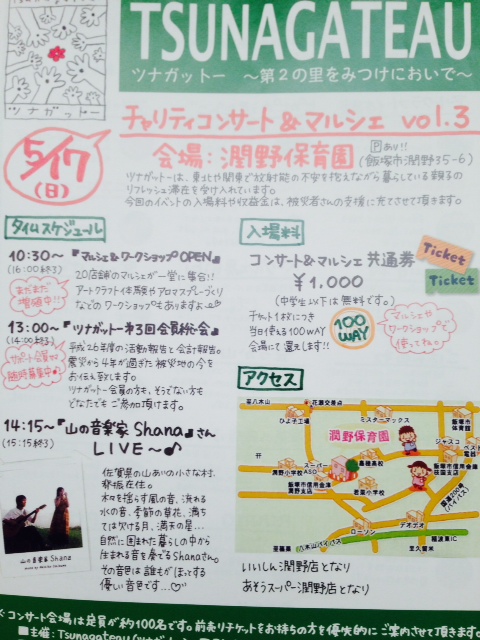 TSUNAGATEAU
ツナガットー
ツナガットー 〜第2の里をみつけにおいで〜
チャリティコンサート&マルシェ vol.3
5/17
(日)
会場:潤野保育園
Pあり!!
(飯塚市潤野35-6)
ツナガットーは、東北や関東で放射能の不安を抱えながら暮らしている親子の
リフレッシュ滞在を受け入れています。
今回のイベントの入場料や収益金は、被災者さんの支援に充てさせて頂きます。
タイムスケジュール
10:30〜『マルシェ&ワークショップOPEN』
(16:00終了)
20店舗のマルシェが一堂に集合!!
アートクラフト体験やアロマスプレーづくり
などのワークショップもありますよ
まだまだ
増殖中!!
13:00〜『ツナガットー第3回会員総会』
(14:00終了)
平成26年度の活動報告と会計報告。
震災から4年が過ぎた被災地の今を
お伝え致します。
ツナガットー会員の方も、そうでない方も
どなたでもご参加頂けます。
サポート会員
随時募集中♪
14:15〜『山の音楽家Shana』さん
(15:15終了)
LIVE〜♪
佐賀県の山あいの小さな村、
在住。
木々を揺らす風の音、流れる
水の音、季節の音花、満ち
ては欠ける月、満天の星…
自然に囲まれた暮らしの中から
生まれる音を奏でるShanaさん。
その音色は誰もがほっとする
優しい音色です…♡
山の音楽家Shana
入場料
コンサート&マルシェ共通券
¥1,000
(中学生以下は無料です。)
Ticket
Ticket
チケット1枚につき
当日使える100WAY
会場にて還えします!!
100
WAY
マルシェや
ワークショップで
使ってね。
アクセス
至八木山
花瀬交差点
ひよ子工場
ミスターマックス
飯塚市
体育館
潤野保育園
ジャスコ
ベスト
電器
潤野小学校
スーパー
ASO
嘉穂高校
飯塚市信用金庫
潤野支店
若菜小学校
飯塚市信用金庫
国道200号
(バイパス)
ローソン
デオデオ
至篠栗
八木山バイパス
至久留米
穂波東IC
いいしん潤野店となり
あそうスーパー潤野店となり
※コンサート会場は定員が約100名です。前売りチケットをお持ちの方を優先的にご案内させて頂きます
■主催:Tsunagateau